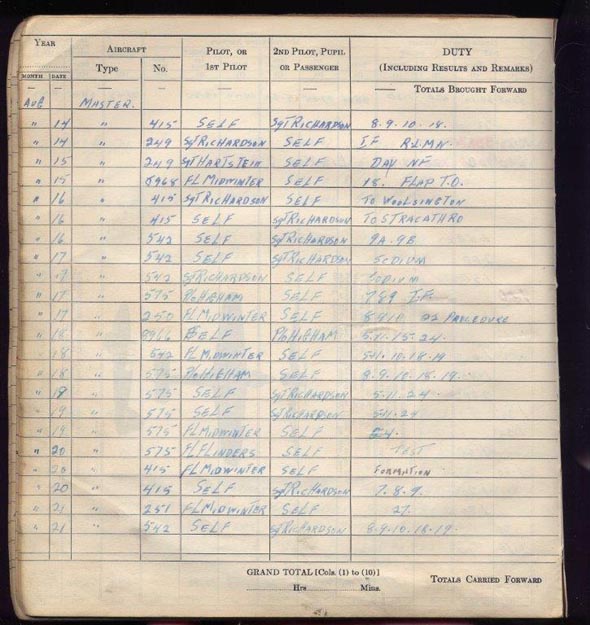 YEAR AIRCRAFT PILOT, OR 2ND PILOT, PUPIL DUTY
MONTH DATE Type No. 1ST PILOT OR PASSENGER (INCLUDING RESULTS AND REMARKS)
— — — — — — — TOTALS BROUGHT FORWARD
AUG MASTER.
" 14 " 415 SELF SGT RICHARDSON 8.9.10.18.
" 14 " 249 SGT RICHARDSON SELF I.F. R.L.M.N.
" 15 " 249 SGT HARTSTEIN SELF DAY NF
" 15 " 8968 FL MIDWINTER SELF 18. FLAP T.O.
" 16 " 415 SGT RICHARDSON SELF TO WOOLSINGTON
" 16 " 415 SELF SGT RICHARDSON TO STRACATHRO
" 16 " 542 SELF SGT RICHARDSON 9A.9B
" 17 " 542 SELF SGT RICHARDSON SODIUM
" 17 " 542 SGT RICHARDSON SELF SODIUM
" 17 " 575 P/O HIGHAM SELF 7.8.9 I.F.
" 17 " 250 FL MIDWINTER SELF 22 PROCEDURE
" 18 " 8966 SELF P/O HIGHAM 15.24.
" 18 " 542 FL MIDWINTER SELF 10.18.19
" 18 " 575 P/O HIGHAM SELF 8.9.10.18.19.
" 19 " 575 SELF SGT RICHARDSON 5.11.24.
" 19 " 575 SELF SGT RICHARDSON 5.11.24
" 19 " 575 FL MIDWINTER SELF
" 20 " 575 FL FLINDERS SELF TEST
" 20 " 415 FL MIDWINTER SELF FORMATION
" 20 " 415 SELF SGT RICHARDSON 7.8.9.
" 21 " 251 FL MIDWINTER SELF 27.
" 21 " 542 SELF SGT RICHARDSON 8.9.10.18.19.
GRAND TOTAL [Cols. (1) to (10)] TOTALS CARRIED FORWARD
Hrs Mins.